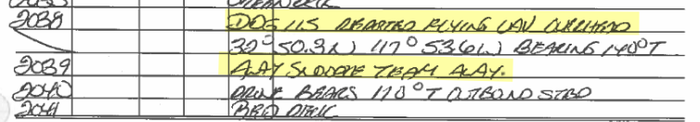 2038 DDG 115 REPORTED FLYING UAV OVERHEAD
32° 50.3N 117° 53.6W BEARING 140°T
2039 AWAY SNOOPIE TEAM AWAY.
2040 DRONE BEARS 170°T OUTBOARD STBD
2041